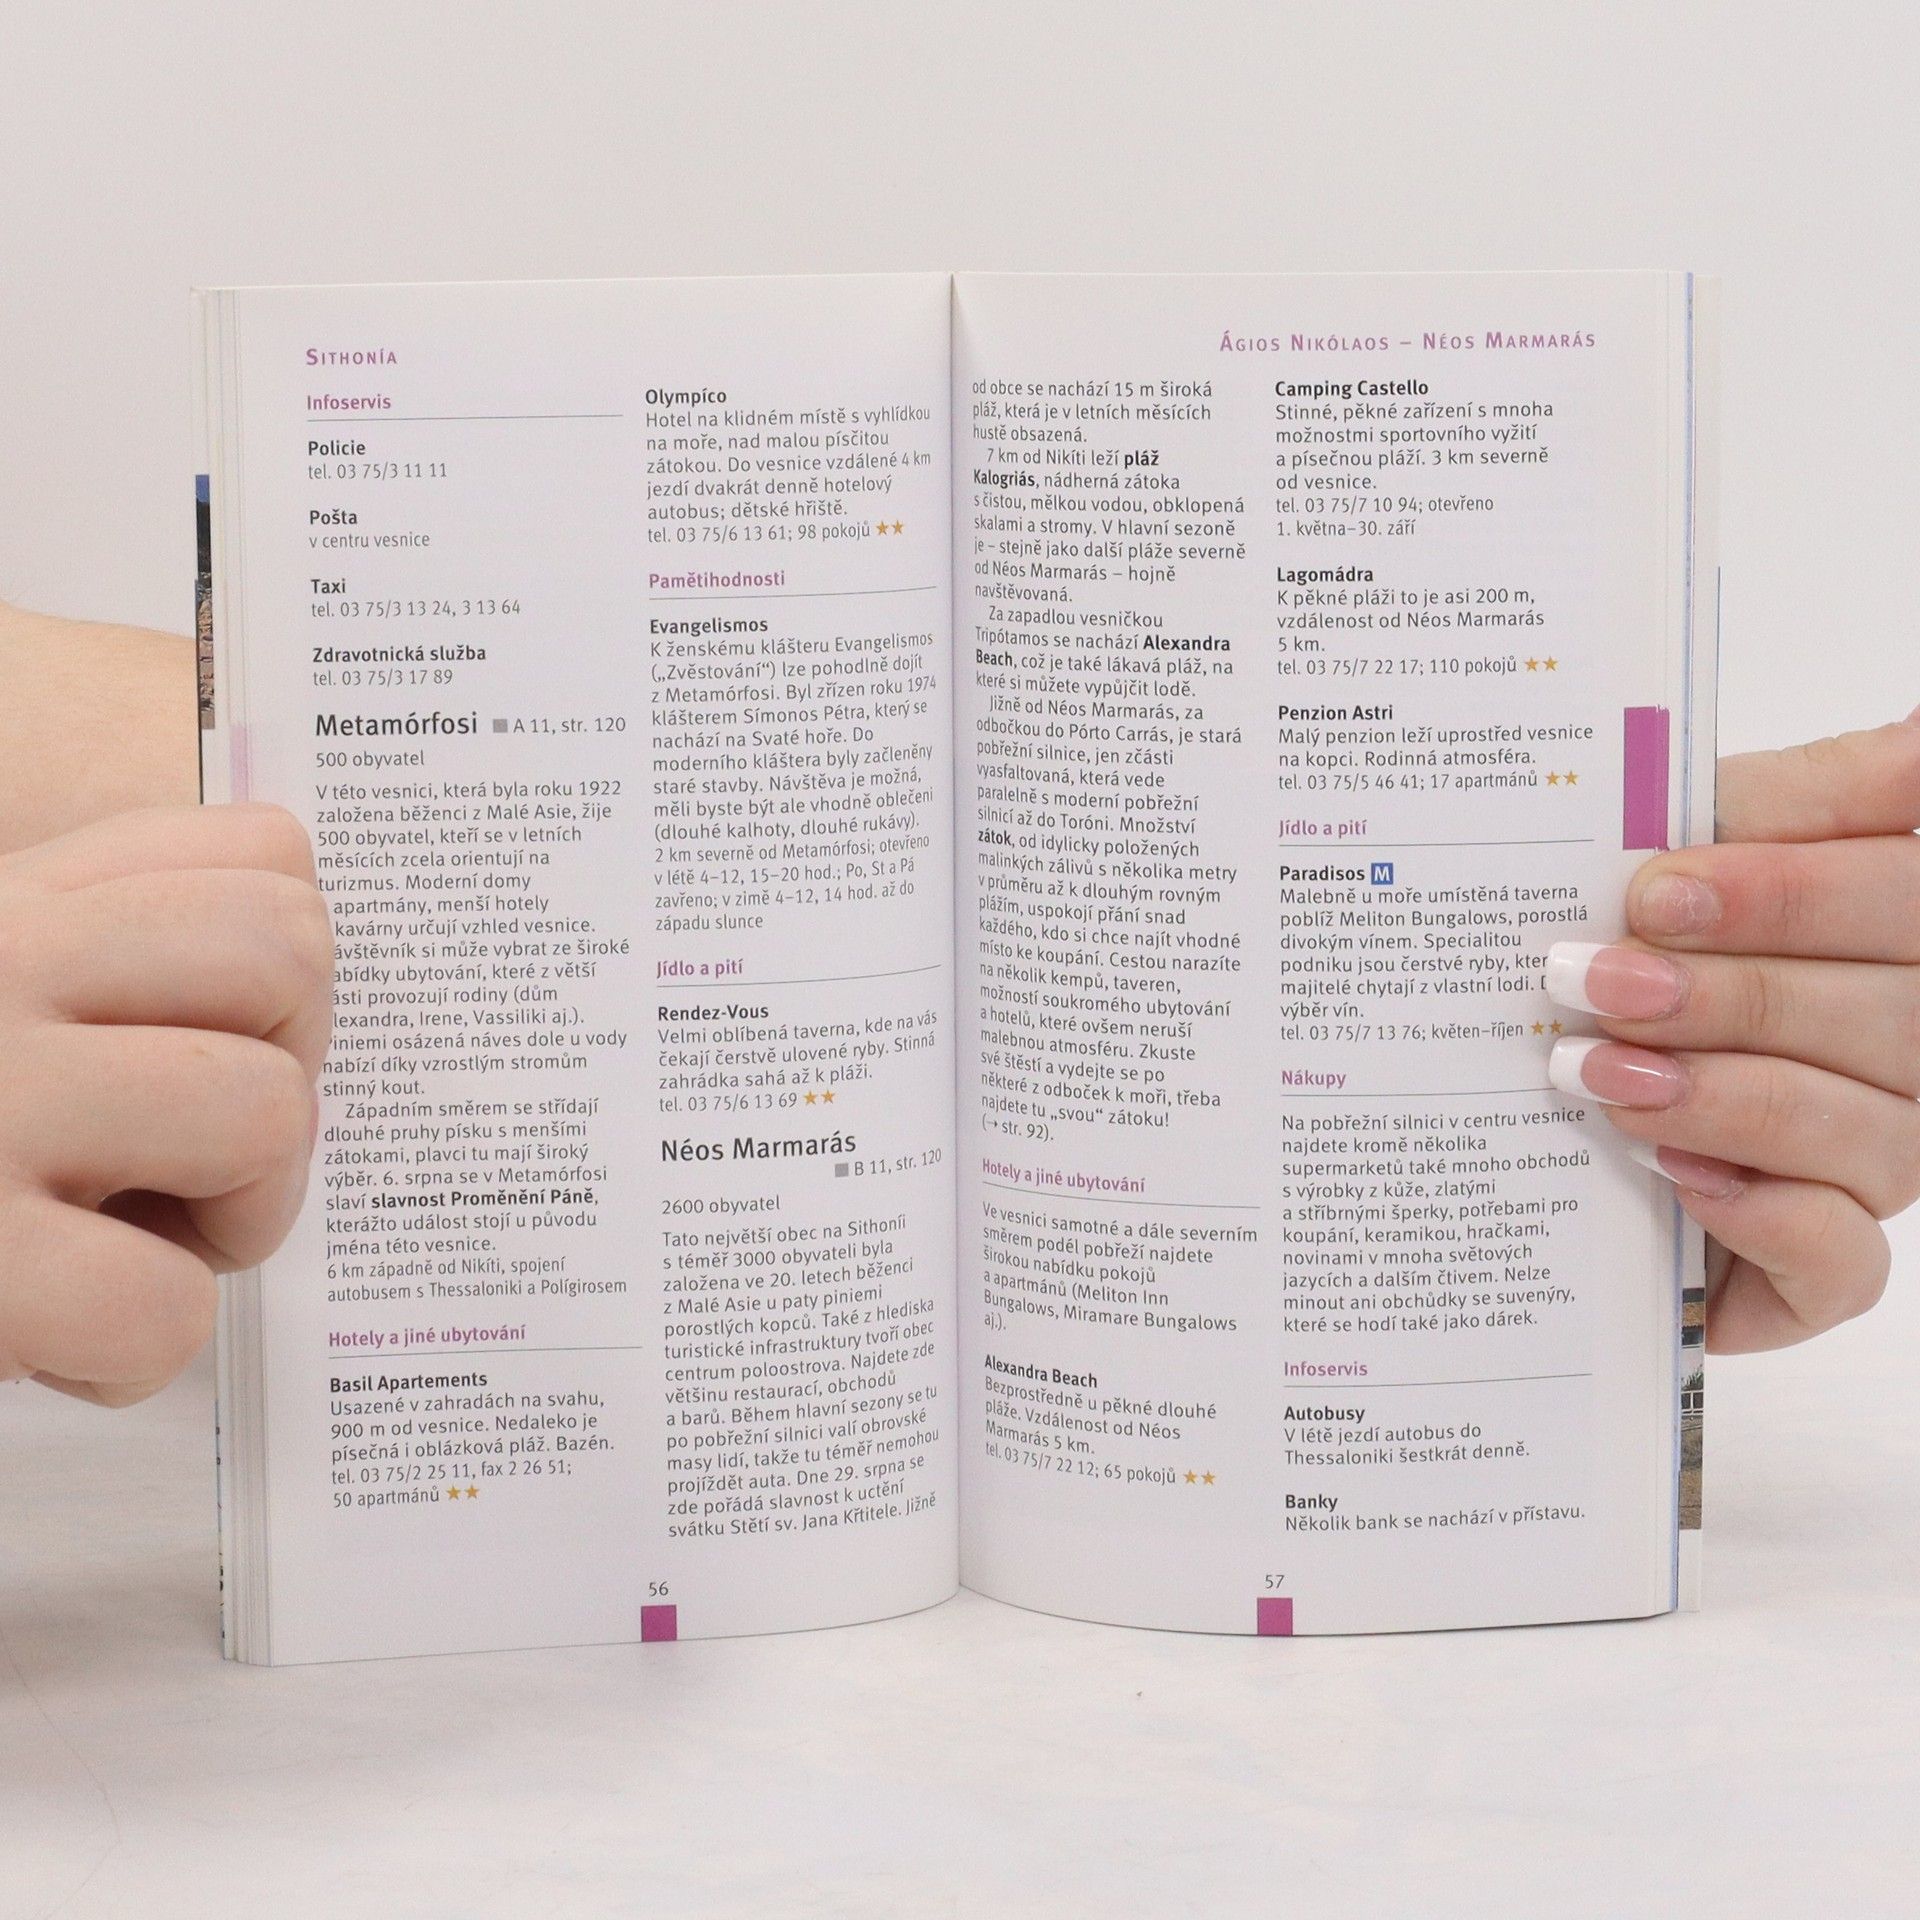 SITHONÍA
Infoservis
Policie
tel. 03 75/3 11 11
Pošta
v centru vesnice
Taxi
tel. 03 75/3 13 24, 3 13 64
Zdravotnická služba
tel. 03 75/3 17 89
Metamórfosi ■ A 11, str. 120
500 obyvatel
V této vesnici, která byla roku 1922
založena běženci z Malé Asie, žije
500 obyvatel, kteří se v letních
měsících zcela orientují na
turizmus. Moderní domy
apartmány, menší hotely
kavárny určují vzhled vesnice.
ávštěvník si může vybrat ze široké
abídky ubytování, které z větší
ásti provozují rodiny (dům
lexandra, Irene, Vassiliki aj.).
iniemi osázená náves dole u vody
nabízí díky vzrostlým stromům
stinný kout.
Západním směrem se střídají
dlouhé pruhy písku s menšími
zátokami, plavci tu mají široký
výběr. 6. srpna se v Metamórfosi
slaví slavnost Proměnění Páně,
kterážto událost stojí u původu
jména této vesnice.
6 km západně od Nikíti, spojení
autobusem s Thessaloniki a Polígirosem
Hotely a jiné ubytování
Basil Apartements
Usazené v zahradách na svahu,
900 m od vesnice. Nedaleko je
písečná i oblázková pláž. Bazén.
tel. 03 75/2 25 11, fax 2 26 51;
50 apartmánů ★★
Olympíco
Hotel na klidném místě s vyhlídkou
na moře, nad malou písčitou
zátokou. Do vesnice vzdálené 4 km
jezdí dvakrát denně hotelový
autobus; dětské hřiště.
tel. 03 75/6 13 61; 98 pokojů ★★
Pamětihodnosti
Evangelismos
K ženskému klášteru Evangelismos
(„Zvěstování“) lze pohodlně dojít
z Metamórfosi. Byl zřízen roku 1974
klášterem Símonos Pétra, který se
nachází na Svaté hoře. Do
moderního kláštera byly začleněny
staré stavby. Návštěva je možná,
měli byste být ale vhodně oblečeni
(dlouhé kalhoty, dlouhé rukávy).
2 km severně od Metamórfosi; otevřeno
v létě 4–12, 15–20 hod.; Po, St a Pá
zavřeno; v zimě 4–12, 14 hod. až do
západu slunce
Jídlo a pití
Rendez-Vous
Velmi oblíbená taverna, kde na vás
čekají čerstvě ulovené ryby. Stinná
zahrádka sahá až k pláži.
tel. 03 75/6 13 69 ★★
Néos Marmarás
■ B 11, str. 120
2600 obyvatel
Tato největší obec na Sithoníi
s téměř 3000 obyvateli byla
založena ve 20. letech běženci
z Malé Asie u paty piniemi
porostlých kopců. Také z hlediska
turistické infrastruktury tvoří obec
centrum poloostrova. Najdete zde
většinu restaurací, obchodů
a barů. Během hlavní sezony se tu
po pobřežní silnici valí obrovské
masy lidí, takže tu téměř nemohou
projíždět auta. Dne 29. srpna se
zde pořádá slavnost k uctění
svátku Stětí sv. Jana Křtitele. Jižně
56
ÁGIOS NIKÓLAOS – NÉOS MARMARÁS
od obce se nachází 15 m široká
pláž, která je v letních měsících
hustě obsazená.
7 km od Nikíti leží pláž
Kalogriás, nádherná zátoka
s čistou, mělkou vodou, obklopená
skalami a stromy. V hlavní sezoně
je – stejně jako další pláže severně
od Néos Marmarás – hojně
navštěvovaná.
Za zapadlou vesničkou
Tripótamos se nachází Alexandra
Beach, což je také lákavá pláž, na
které si můžete vypůjčit lodě.
Jižně od Néos Marmarás, za
odbočkou do Pórto Carrás, je stará
pobřežní silnice, jen zčásti
vyasfaltovaná, která vede
paralelně s moderní pobřežní
silnicí až do Toróni. Množství
zátok, od idylicky položených
malinkých zálivů s několika metry
v průměru až k dlouhým rovným
plážím, uspokojí přání snad
každého, kdo si chce najít vhodné
místo ke koupání. Cestou narazíte
na několik kempů, taveren,
možností soukromého ubytování
a hotelů, které ovšem neruší
malebnou atmosféru. Zkuste
své štěstí a vydejte se po
některé z odboček k moři, třeba
najdete tu „svou“ zátoku!
(→ str. 92).
Hotely a jiné ubytování
Ve vesnici samotné a dále severním
směrem podél pobřeží najdete
širokou nabídku pokojů
a apartmánů (Meliton Inn
Bungalows, Miramare Bungalows
aj.).
Alexandra Beach
Bezprostředně u pěkné dlouhé
pláže. Vzdálenost od Néos
Marmarás 5 km.
tel. 03 75/7 22 12; 65 pokojů ★★
Camping Castello
Stinné, pěkné zařízení s mnoha
možnostmi sportovního vyžití
a písečnou pláží. 3 km severně
od vesnice.
tel. 03 75/7 10 94; otevřeno
1. května–30. září
Lagomádra
K pěkné pláži to je asi 200 m,
vzdálenost od Néos Marmarás
5 km.
tel. 03 75/7 22 17; 110 pokojů ★★
Penzion Astri
Malý penzion leží uprostřed vesnice
na kopci. Rodinná atmosféra.
tel. 03 75/5 46 41; 17 apartmánů ★★
Jídlo a pití
Paradisos M
Malebně u moře umístěná taverna
poblíž Meliton Bungalows, porostlá
divokým vínem. Specialitou
podniku jsou čerstvé ryby, kter
majitelé chytají z vlastní lodi.
výběr vín.
tel. 03 75/7 13 76; květen–říjen ★★
Nákupy
Na pobřežní silnici v centru vesnice
najdete kromě několika
supermarketů také mnoho obchodů
s výrobky z kůže, zlatými
a stříbrnými šperky, potřebami pro
koupání, keramikou, hračkami,
novinami v mnoha světových
jazycích a dalším čtivem. Nelze
minout ani obchůdky se suvenýry,
které se hodí také jako dárek.
Infoservis
Autobusy
V létě jezdí autobus do
Thessaloniki šestkrát denně.
Banky
Několik bank se nachází v přístavu.
57